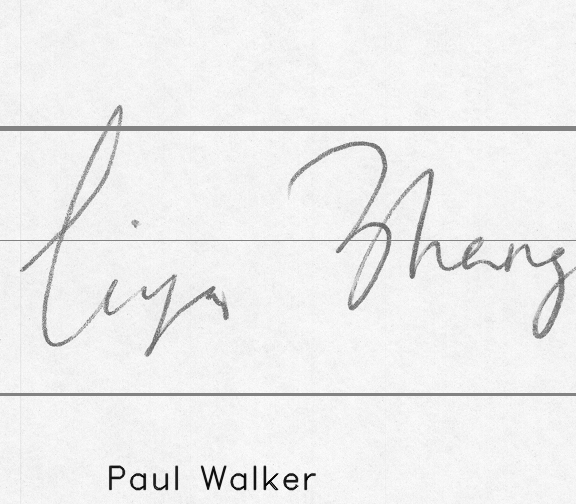 Liya Zhang
Paul Walker